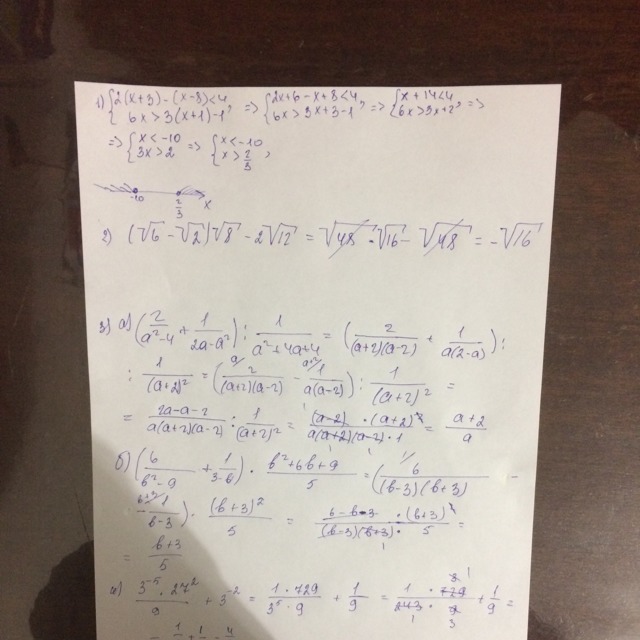 1) {2(x+3)-(x-8)<4 6x>3(x+1)-1, => {2x+6-x+8<4 6x>3x+3-1, => {x+14<4 6x>3x+2, =>
=> {x<-10 3x>2 => {x<-10 x>2/3,
-10 2/3 x
2) (√6-√2)√8-2√12 = √48 · √16 - √48 = -√16
3) а) (2/(a²-4) + 1/(2a-a²)) : 1/(a²+4a+4) = (2/((a+2)(a-2)) + 1/(a(2-a))) :
: 1/(a+2)² = (2/((a+2)(a-2)) - 1/(a(a-2))) : 1/(a+2)² =
= (2a-a-2)/(a(a+2)(a-2)) : 1/(a+2)² = ((a-2)·(a+2)²)/(a(a+2)(a-2)·1) = (a+2)/a
б) (6/(b²-9) + 1/(3-b)) · (b²+6b+9)/5 = (6/((b-3)(b+3)) -
- 1/(b-3)) · (b+3)²/5 = (6-b-3 · (b+3)²)/((b-3)(b+3) · 5) =
= (b+3)/5
(3⁻⁵ · 27²)/9 + 3⁻² = (1 · 729)/(3⁵ · 9) + 1/9 = (1 · 729)/(243 · 9) + 1/9 =